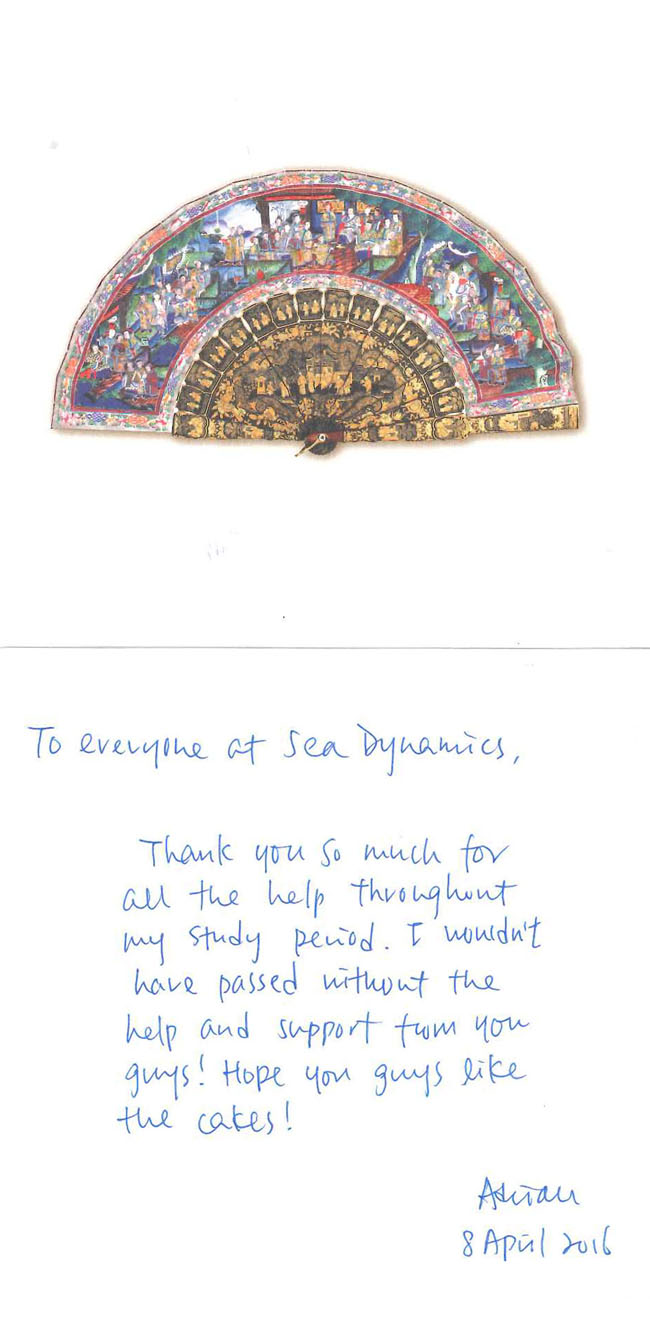 To everyone at Sea Dynamics,
Thank you so much for
all the help throughout
my study period. I wouldn't
have passed without the
help and support from you
guys! Hope you guys like
the cakes!
8 April 2016